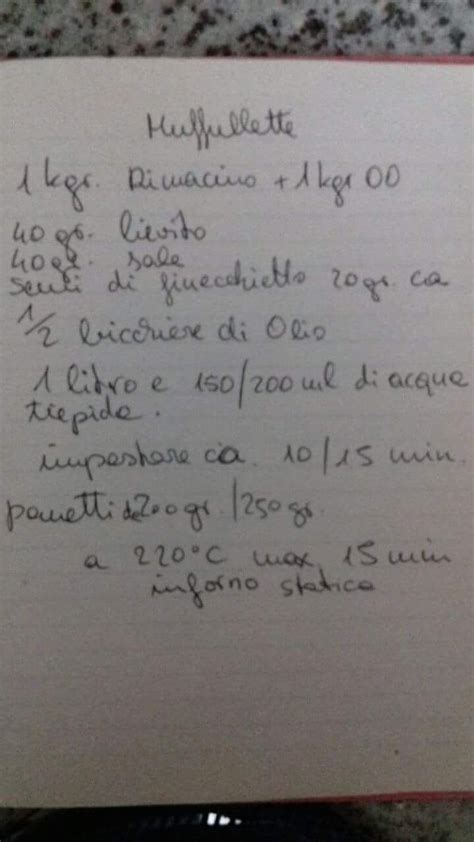 Muffullette
1 kgr. Rimacino + 1 kgr 00
40 gr. lievito
40 gr. sale
Semi di finecchietto 20 gr. ca
1/2 bicchiere di Olio
1 litro e 150/200 ml di acqua
tiepida.
impastare ca. 10/15 min.
panetti da 200 gr./250 gr.
a 220°C max 15 min
in forno statico